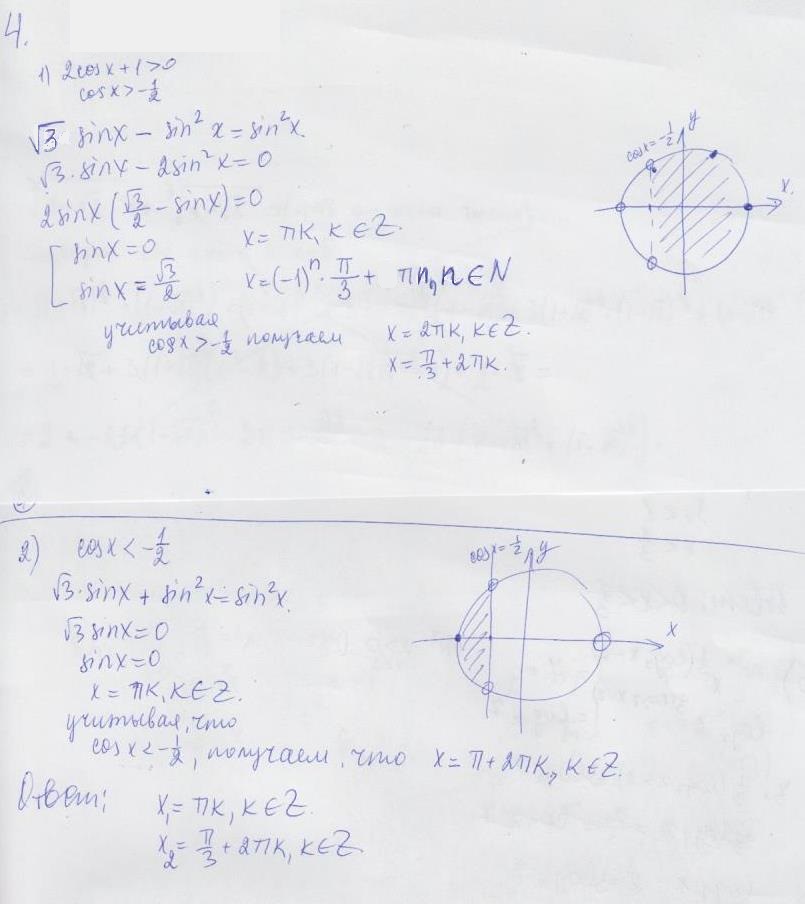 4.
1) 2cosx+1>0
cosx>-1/2
√3 sinx - sin²x = sin²x.
√3·sinx - 2sin²x = 0
2sinx(√3/2 - sinx)=0
[ sinx=0 x=πk, k∈Z.
sinx=√3/2 x=(-1)ⁿ·π/3 + πn, n∈N
учитывая
cosx>-1/2 получаем x=2πk, k∈Z.
x=π/3+2πk.
cosx=-1/2
y
x
2) cosx<-1/2
√3·sinx + sin²x=sin²x.
√3 sinx=0
sinx=0
x=πk, k∈Z.
учитывая, что
cosx<-1/2, получаем, что x=π+2πk, k∈Z.
cosx=-1/2
y
x
Ответ: x₁=πk, k∈Z.
x₂=π/3+2πk, k∈Z